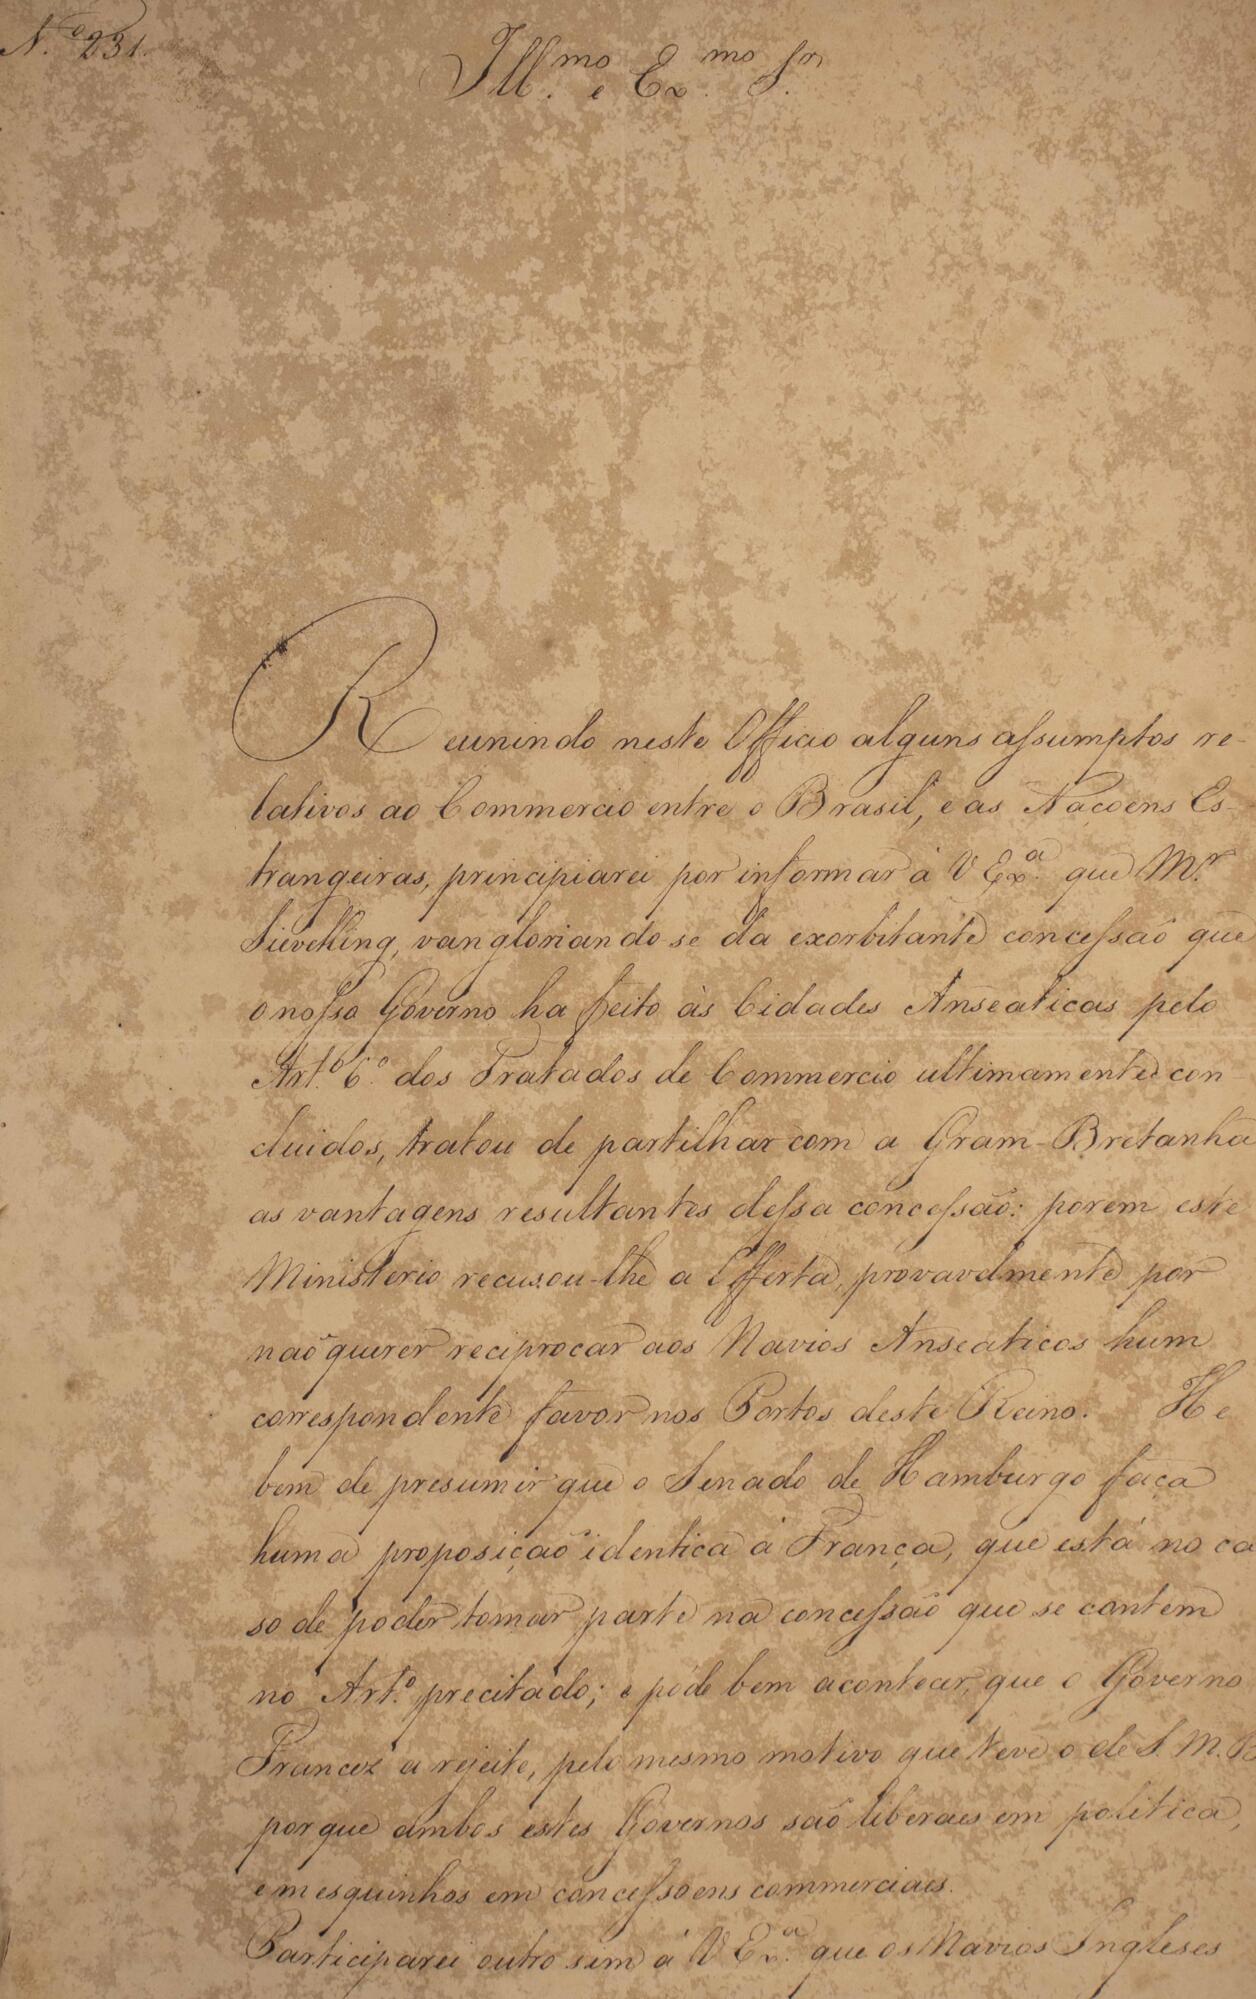 N.º 231.
Ill.mo e Ex.mo Sr.
Reunindo neste Officio alguns assumptos re-
lativos ao Commercio entre o Brasil, e as Naçoens Es-
trangeiras, principiarei por informar á V Ex.ª que Mr.
Sievekling, vangloriando se da exorbitante concessão que
o nosso Governo ha feito às Cidades Anseaticas pelo
Art.º 6.º dos Tratados de Commercio ultimamente con-
cluidos, tratou de partilhar com a Gram-Bretanha
as vantagens resultantes dessa concessão: porem este
Ministerio recusou-lhe a Offerta, provavelmente por
não querer reciprocar aos Navios Anseaticos hum
correspondente favor nos Portos deste Reino. He
bem de presumir que o Senado de Hamburgo faça
huma proposição identica á França, que está no ca
so de poder tomar parte na concessão que se contem
no Art.º precitado; e póde bem acontecer, que o Governo
Francez a rejeite, pelo mesmo motivo que teve o de S. M. B
porque ambos estes Governos são liberaes em politica,
e mesquinhos em concessoens commerciaes.
Participarei outro sim á V Ex.ª que os Navios Inglesses